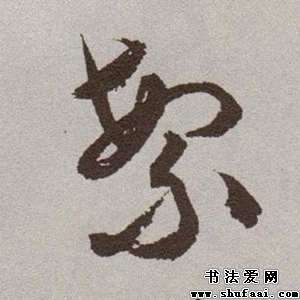 絮
书法爱网
www.shufaai.com